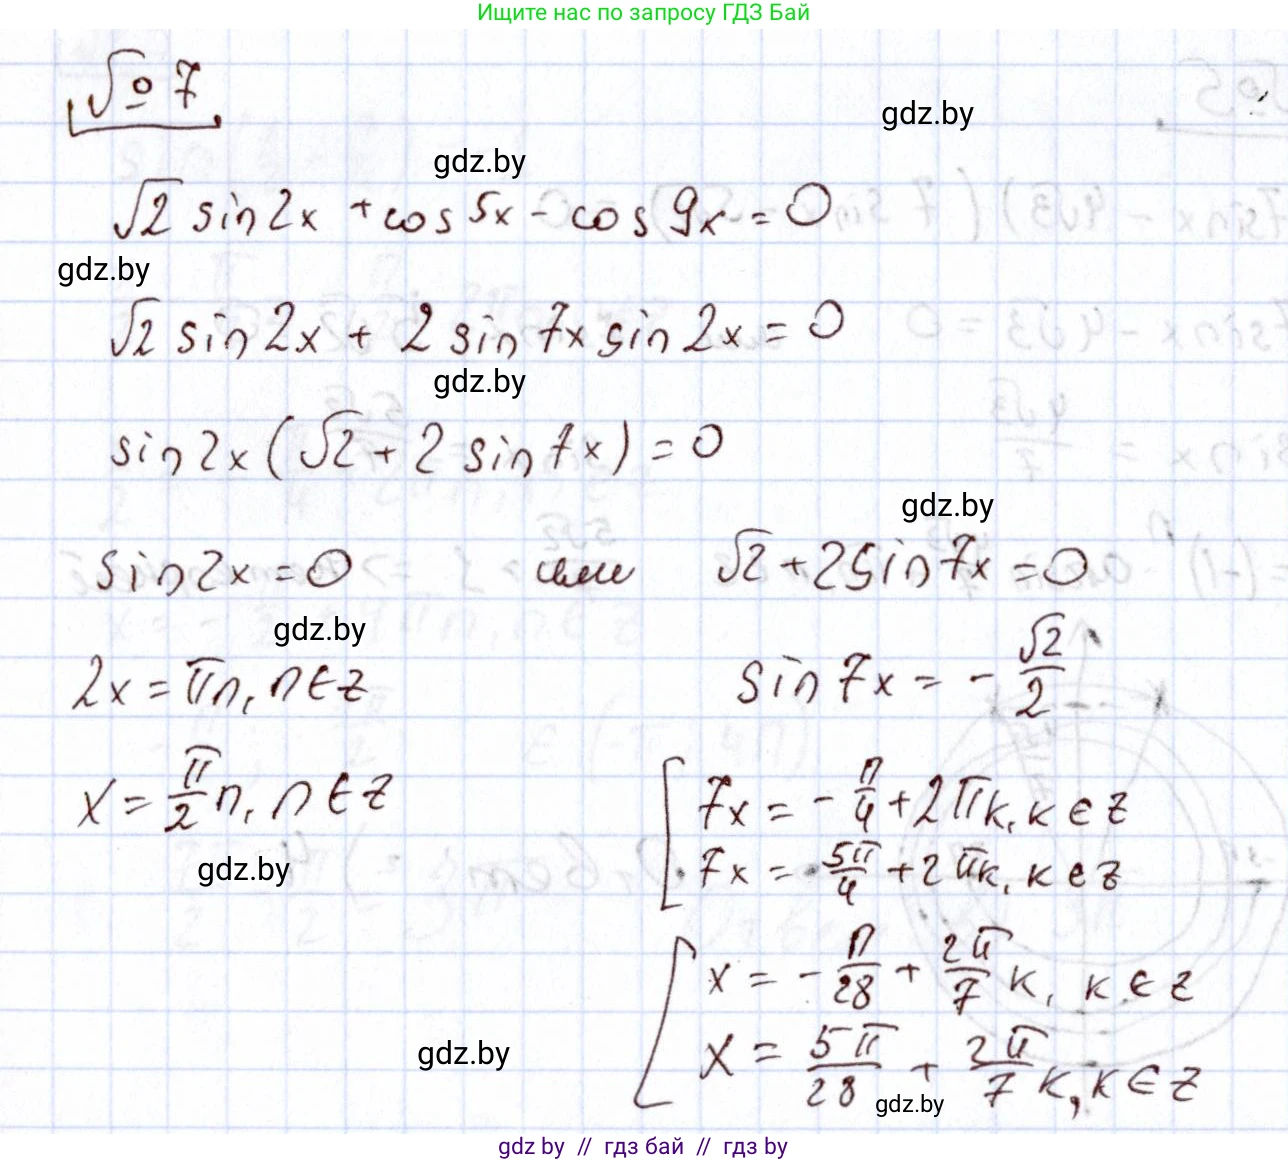 Ищите нас по запросу ГДЗ Бай
№ 7
gdz.by
gdz.by
√2 sin2x + cos5x - cos9x = 0
gdz.by
√2 sin2x + 2 sin7x sin2x = 0
gdz.by
sin2x (√2 + 2 sin7x) = 0
gdz.by
sin2x = 0 или √2 + 2sin7x = 0
gdz.by
2x = πn, n ∈ z sin7x = - √2/2
x = π/2 n, n ∈ z
[ 7x = - π/4 + 2πk, k ∈ z
gdz.by
7x = 5π/4 + 2πk, k ∈ z
[ x = - π/28 + 2π/7 k, k ∈ z
gdz.by
x = 5π/28 + 2π/7 k, k ∈ z
gdz.by
gdz by // гдз бай // гдз by